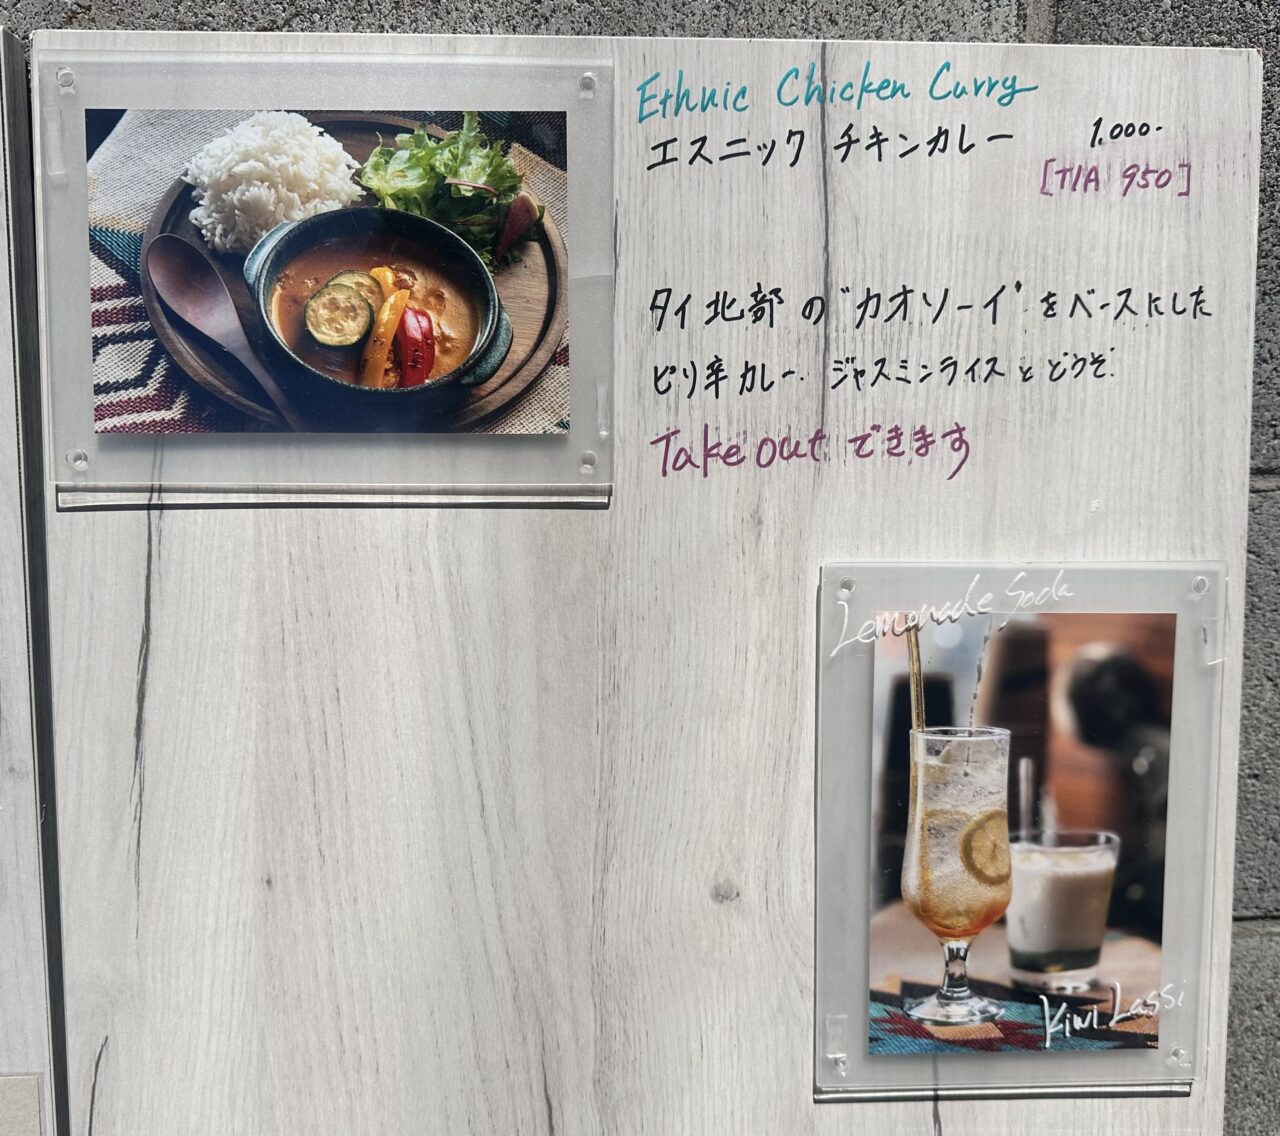 Ethnic Chicken Curry
エスニック チキンカレー 1.000-
[T/A 950]
タイ北部の"カオソーイ"をベースにした
ピリ辛カレー. ジャスミンライスとどうぞ.
Take out できます
Lemonade Soda
Kiwi Lassi